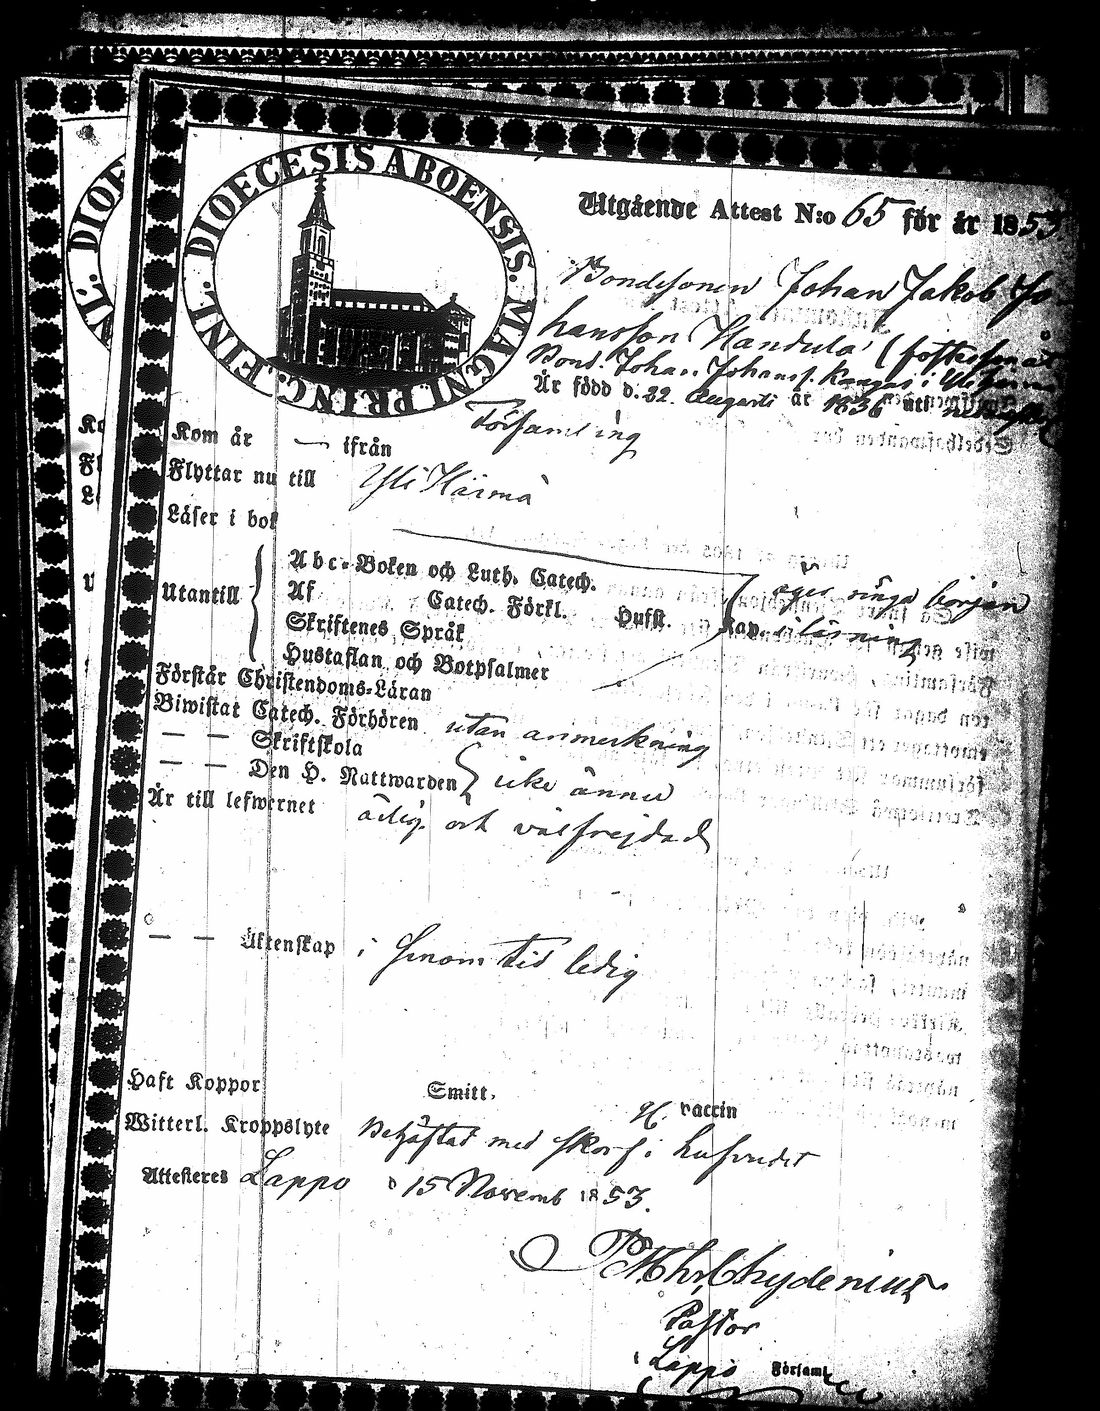 DIOECESIS ABOENSIS. MAGNI PRINC. FINL.
Utgående Attest N:o 65 för år 1853.
Bondesonen Johan Jakob Jo
hansson Handula (fosterson åt
Bond. Johan Johans. Kangas i Yli Härmä
Är född d. 22 Augusti år 1836 uti
Församling
Kom år — ifrån
Flyttar nu till Yli Härmä
Läser i bok
Utantill
Abc-Boken och Luth. Catech.
Af Catech. Förkl. Husst. Kap.
äger ringa början
i läsning
Skriftenes Språk
Hustaflan och Botpsalmer
Förstår Christendoms-Läran
Biwistat Catech. Förhören utan anmerkning
— — Skriftskola
— — Den H. Nattwarden icke ännu
Är till lefwernet ärlig och välfrejdad
— — Äktenskap i sinom tid ledig
Haft Koppor Smitt. vaccin
Witterl. Kroppslyte Behäftad med skorf i hufvudet
Attesteres Lappo d 15 Novemb 1853.
Chydenius
Pastor
i Lappo Församl